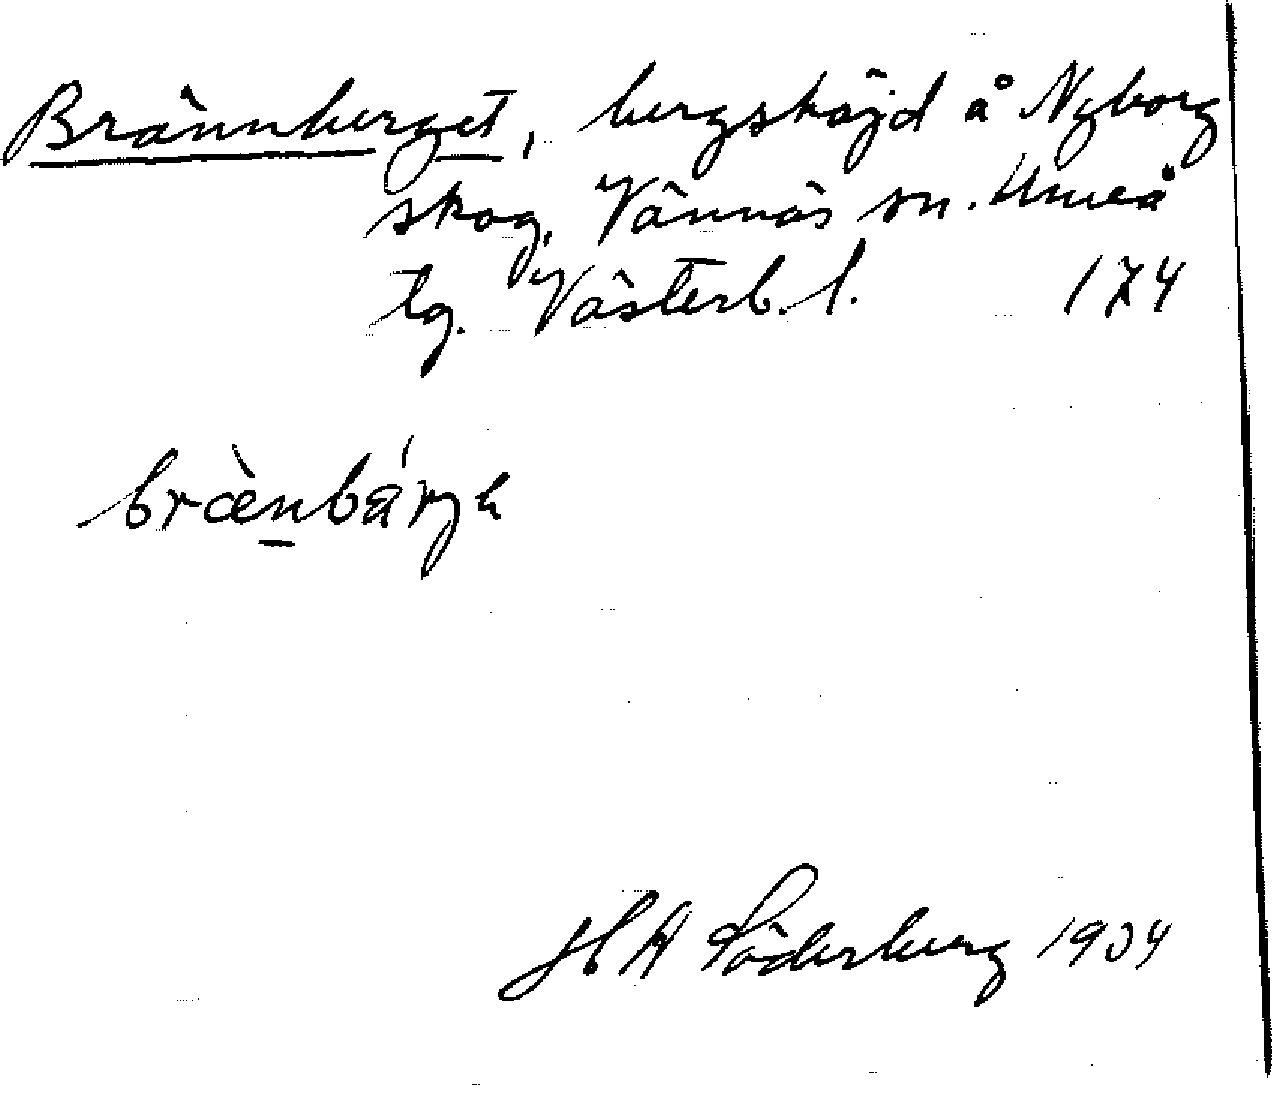 Brännberget, bergshöjd å Nyborg
skog, Vännäs sn. Umeå
tg. Västerb. l. 174
bræ̀nbárje
H A Söderberg 1934